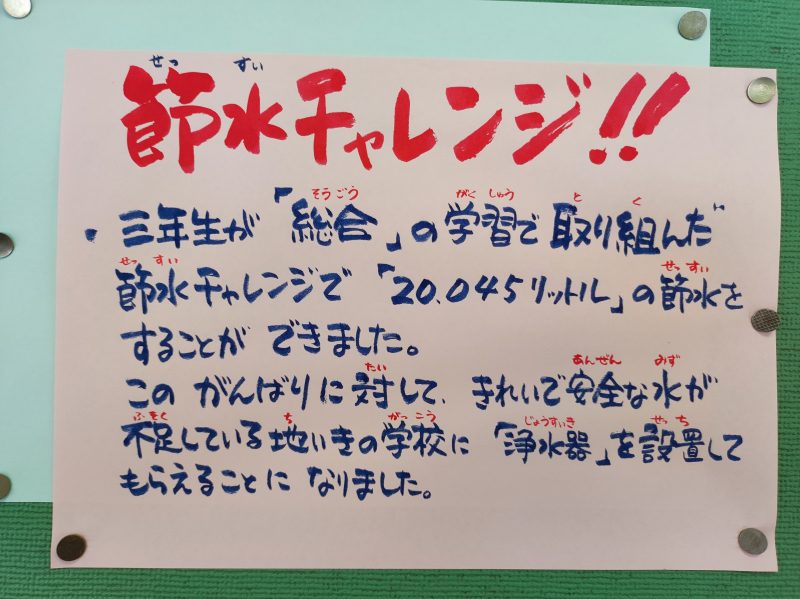 せっ すい
節水チャレンジ!!
そうごう がくしゅう とく
・三年生が「総合」の学習で取り組んだ
せっすい せっすい
節水チャレンジで「20.045リットル」の節水を
することが できました。
たい あんぜん みず
この がんばりに対して、きれいで安全な水が
ふそく ち がっこう じょうすいき せっち
不足している地いきの学校に「浄水器」を設置して
もらえることに なりました。